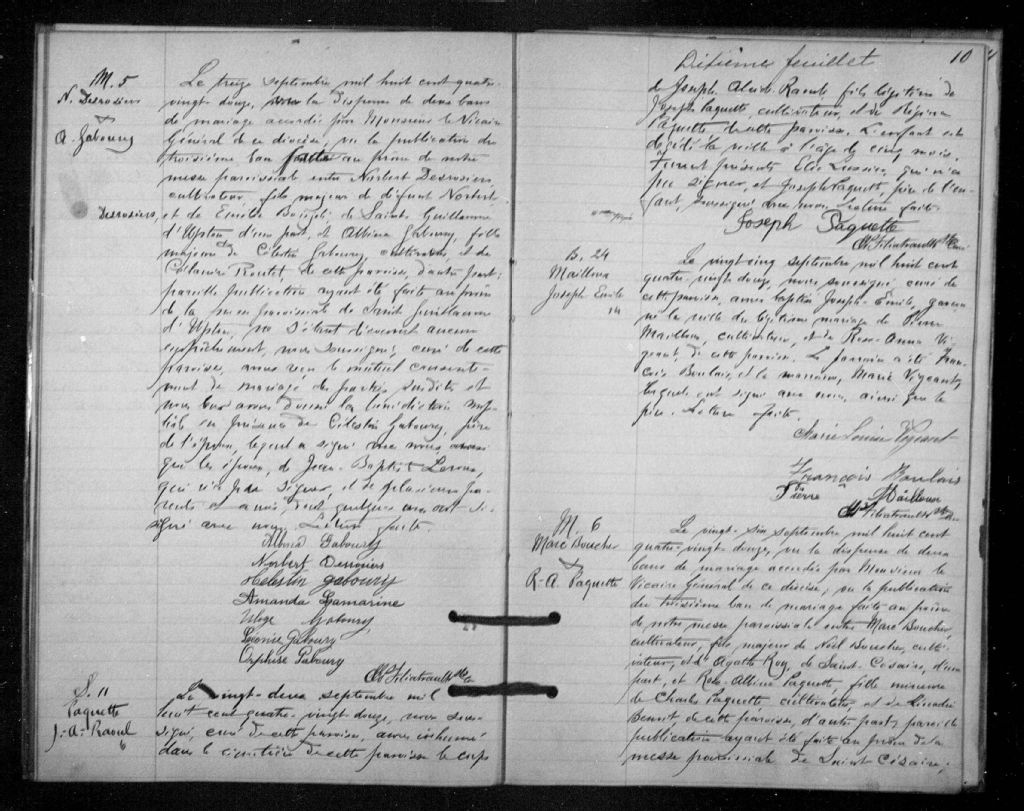 M. 5
N. Desrosiers
&
A. Gaboury
Desrosiers,
Le treize septembre mil huit cent quatre-
vingt-douze, vu la dispense de deux bans
de mariage accordée par Monsieur le Vicaire
Général de ce diocèse, vu la publication du
troisième ban faite au prône de notre
messe paroissiale entre Norbert Desrosiers,
cultivateur, fils majeur de défunt Norbert
et de Emilie de Saint Guillaume
d'Upton d'une part, et Albina Gaboury, fille
majeure de Célestin Gaboury, cultivateur, et de
Routet de cette paroisse, d'autre part;
pareille publication ayant été faite au prône
de la messe paroissiale de Saint Guillaume
d'Upton, ne s'étant découvert aucun
empêchement, nous soussigné, curé de cette
paroisse, avons reçu le mutuel consente-
ment de mariage des parties susdites et
nous leur avons donné la bénédiction nup-
tiale en présence de Célestin Gaboury, père
de l'épouse, lequel a signé avec nous, ainsi
que les époux, de Jean-Baptiste Leroux,
qui n'a pu signer, et de plusieurs pa-
rents et amis, dont quelques uns ont si-
signé avec nous. Lecture faite.
Albina Gaboury
Norbert Desrosiers
Célestin Gaboury
Amanda Lamarine
Uloge Gaboury
Léonie Gaboury
Orphise Gaboury
Filiatrault Ptre
S. 11
Paquette
J.-A.-Raoul
6
Le vingt-deux septembre mil
huit cent quatre-vingt-douze, nous sous-
signé, curé de cette paroisse, avons inhumé
dans le cimetière de cette paroisse le corps
Dixième feuillet
10
de Joseph Raoul fils légitime de
Joseph Paquette, cultivateur, et de Régina
Paquette de cette paroisse. L'enfant est
décédé la veille à l'âge de cinq mois.
Furent présents Elie Lussier, qui n'a
pu signer, et Joseph Paquette, père de l'en-
fant, soussigné avec nous. Lecture faite.
Joseph Paquette
Filiatrault Ptre Curé
B. 24
Mailloux
Joseph Emile
14
Le vingt cinq septembre mil huit cent
quatre-vingt-douze, nous soussigné curé de
cette paroisse, avons baptisé Joseph-Emile, garçon
né la veille du légitime mariage de Pierre
Mailloux, cultivateur, et de Rose-Anna Vi-
geant, de cette paroisse. Le parrain a été Fran-
çois Boulais, et la marraine, Marie Vigeant,
lesquels ont signé avec nous, ainsi que le
père. Lecture faite.
Marie Louise Vigeant
François Boulais
Pierre Mailloux
Filiatrault Ptre Curé
M. 6
Marc Boucher
&
R.-A. Paquette
Le vingt-six septembre mil huit cent
quatre-vingt-douze, vu la dispense de deux
bans de mariage accordée par Monsieur le
Vicaire Général de ce diocèse, vu la publication
du troisième ban de mariage faite au prône
de notre messe paroissiale entre Marc Boucher
cultivateur, fils majeur de Noël Boucher, culti-
vateur, et d'Agathe Roy, de Saint-Césaire, d'une
part, et Rose-Albina Paquette, fille mineure
de Charles Paquette, cultivateur, et de
Benoit de cette paroisse, d'autre part; pareille
publication ayant été faite au prône de la
messe paroissiale de Saint Césaire;